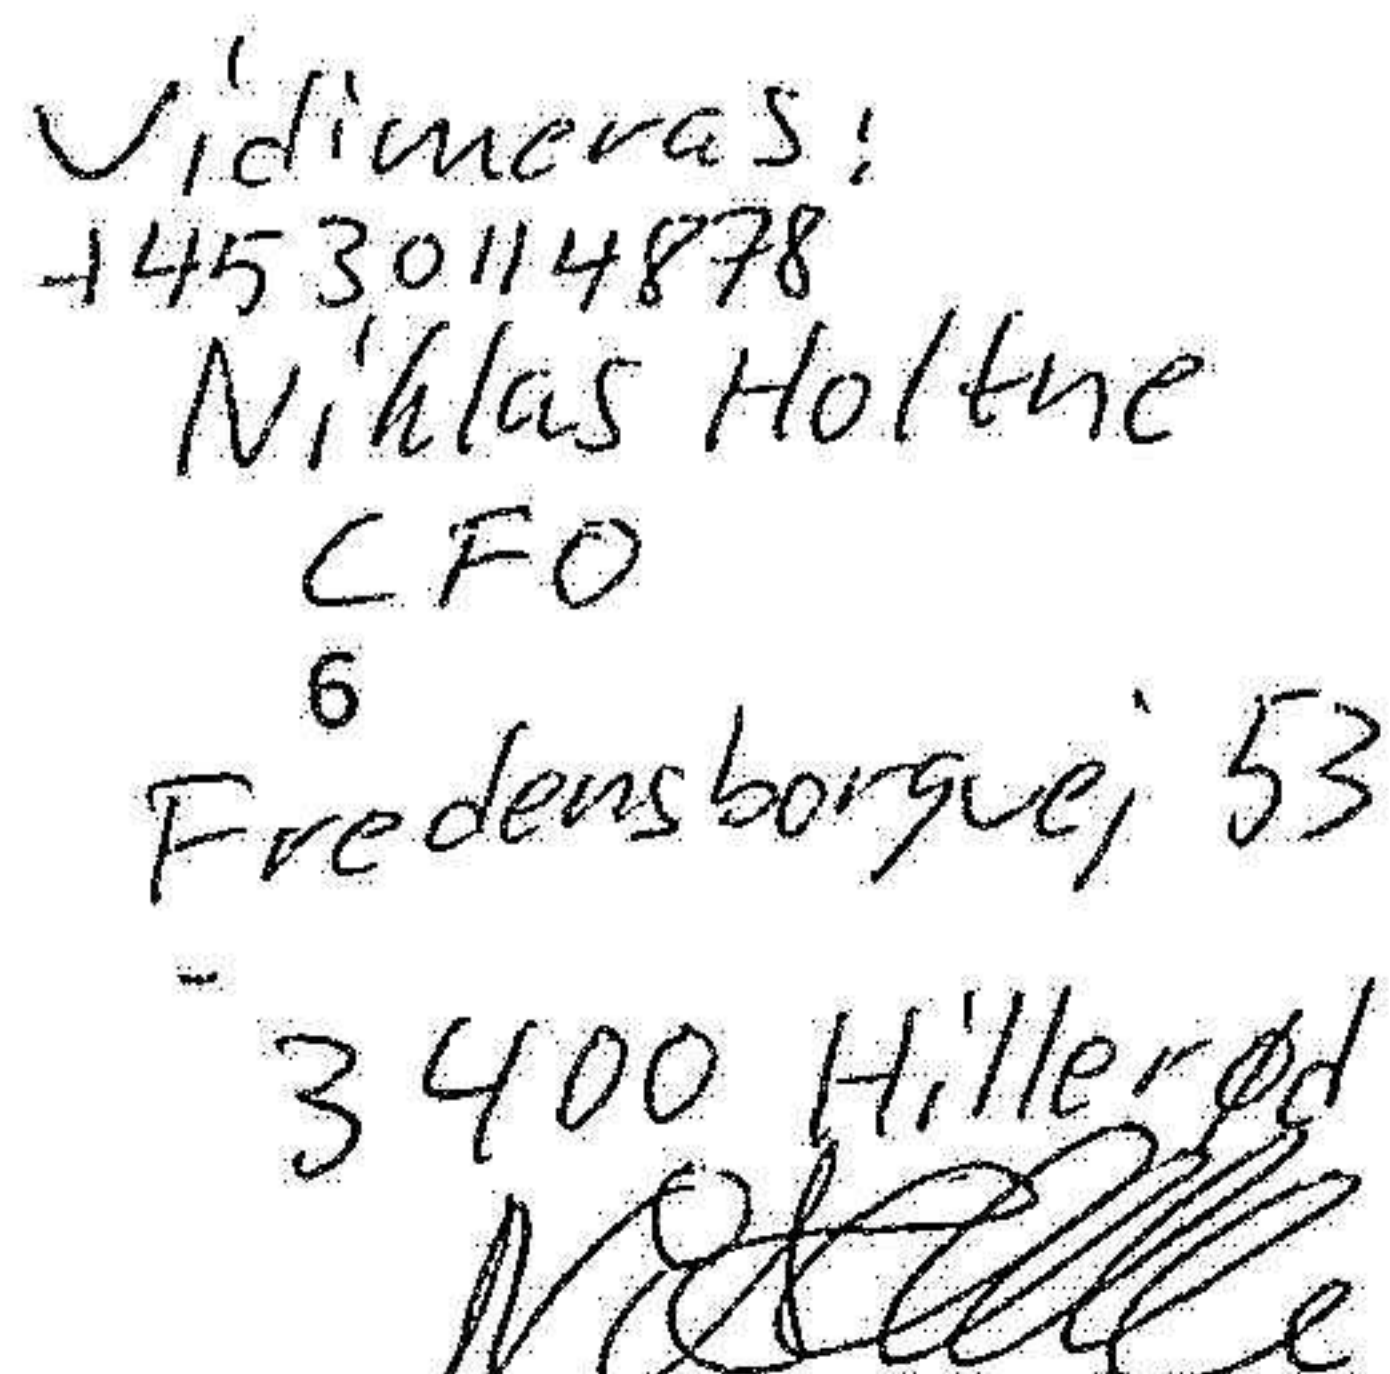 Vidimeras:
+4530114878
Niklas Holtne
CFO
6
Fredensborgvej 53
-
3400 Hillerød